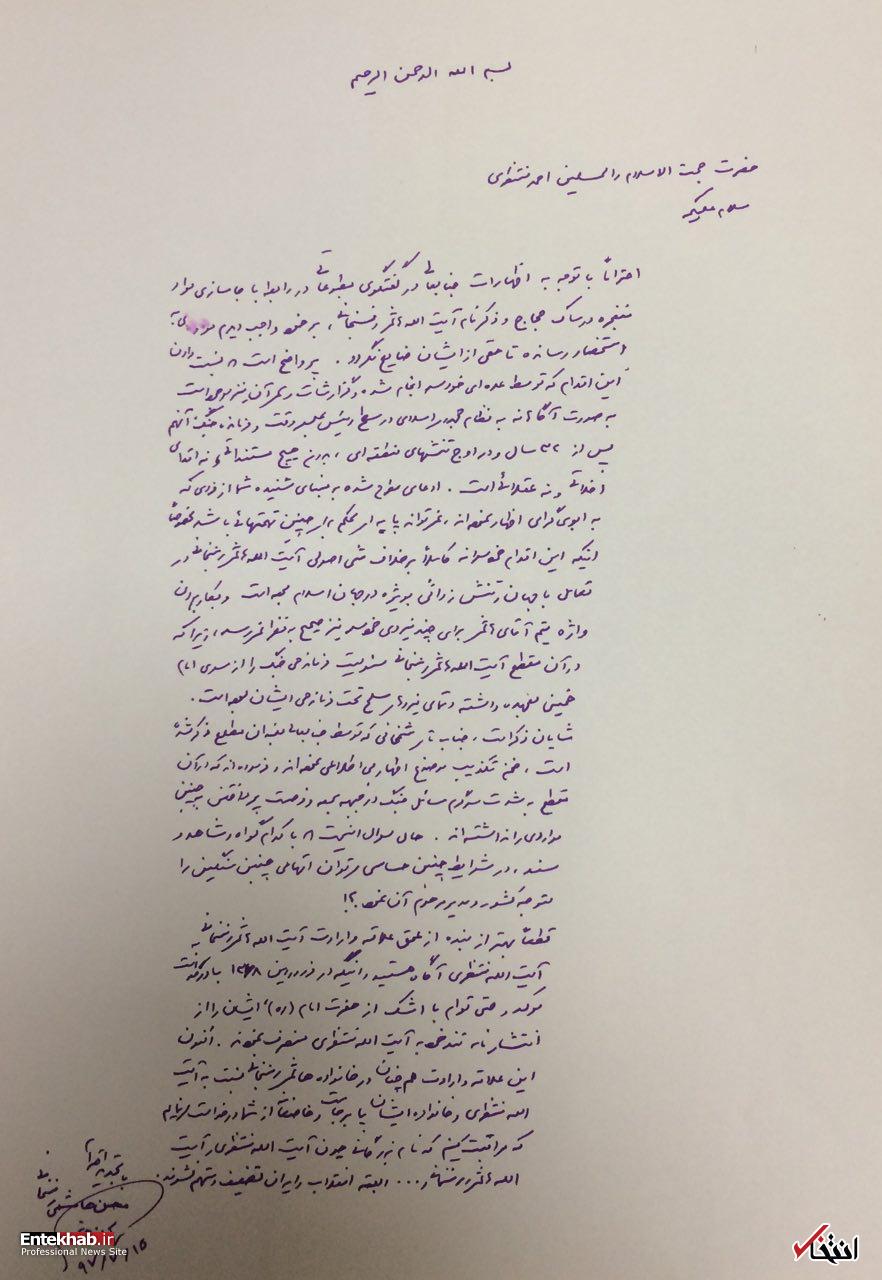 بسم الله الرحمن الرحیم
حضرت حجت الاسلام والمسلمین احمد منتظری
سلام علیکم
احتراماً با توجه به اظهارات جنابعالی در گفتگوی مطبوعاتی در رابطه با جاسازی مواد
منفجره در ساک حجاج و ذکر نام آیت الله هاشمی رفسنجانی، بر خود واجب دیدم مواردی به
استحضار رسانده تا حقی از ایشان ضایع نگردد. پر واضح است نسبت دادن
این اقدام که توسط عده‌ای خودسر انجام شده و گزارشات و ثمر آن نیز موجود است
به صورت آگاهانه به نظام جمهوری اسلامی در سطح رئیس مجلس وقت و فرمانده جنگ آنهم
پس از ۳۲ سال و در اوج تنشهای منطقه‌ای، بدون هیچ مستنداتی نه اقدامی
اخلاقی و نه عقلائی است. ادعای مطرح شده بر مبنای شنیده شما از فردی که
به ابوی گرامی اظهار نموده‌اند، نمی‌تواند پایه ای محکم برای چنین تهمتهائی باشد خصوصاً
اینکه این اقدام خودسرانه کاملاً برخلاف مشی اصولی آیت الله هاشمی رفسنجانی در
تعامل با جهان و تنش زدائی بویژه در جهان اسلام بوده است و بکار بردن
واژه تیم آقای هاشمی برای چند نیروی خودسر نیز صحیح به نظر نمی‌رسد، زیرا که
در آن مقطع آیت الله هاشمی رفسنجانی مسئولیت فرماندهی جنگ را از سوی امام
خمینی بعهده داشته و تمامی نیروهای مسلح تحت فرماندهی ایشان بوده است.
شایان ذکر است، جناب شمخانی که توسط جنابعالی بعنوان مطلع ذکر شده
است، ضمن تکذیب موضوع اظهار بی اطلاعی نموده‌اند و فرموده‌اند که در آن
مقطع به شدت سرگرم مسائل جنگ در جبهه بوده و فرصت پرداختن به چنین
مواردی را نداشته‌اند. حال سوال اینست با کدام گواه و شاهد و
سند، در شرایط چنین حساسی می‌توان اتهامی چنین سنگین را
متوجه کشور و مدیر مرحوم آن نمود؟!
قطعاً بهتر از بنده از عمق علاقه و ارادت آیت الله هاشمی رفسنجانی به
آیت الله منتظری آگاه هستید و اینکه در فروردین ۱۳۶۸ با درخواست
موکد و حتی توام با اشک از حضرت امام (ره)، ایشان را از
انتشار نامه تند خود به آیت الله منتظری منصرف نمودند. اکنون
این علاقه و ارادت هم چنان در خانواده هاشمی رفسنجانی نسبت به آیت
الله منتظری و خانواده ایشان پا برجاست و خاضعاً از شما درخواست می‌نمایم
که مراقبت کنیم که نام بزرگانی چون آیت الله منتظری و آیت
الله هاشمی رفسنجانی و... البته انقلاب و ایران تضعیف و متهم نشوند.
با تجدید احترام
محسن هاشمی رفسنجانی
۹۷/۷/۱۵
Entekhab.ir
Professional News Site
انتخاب